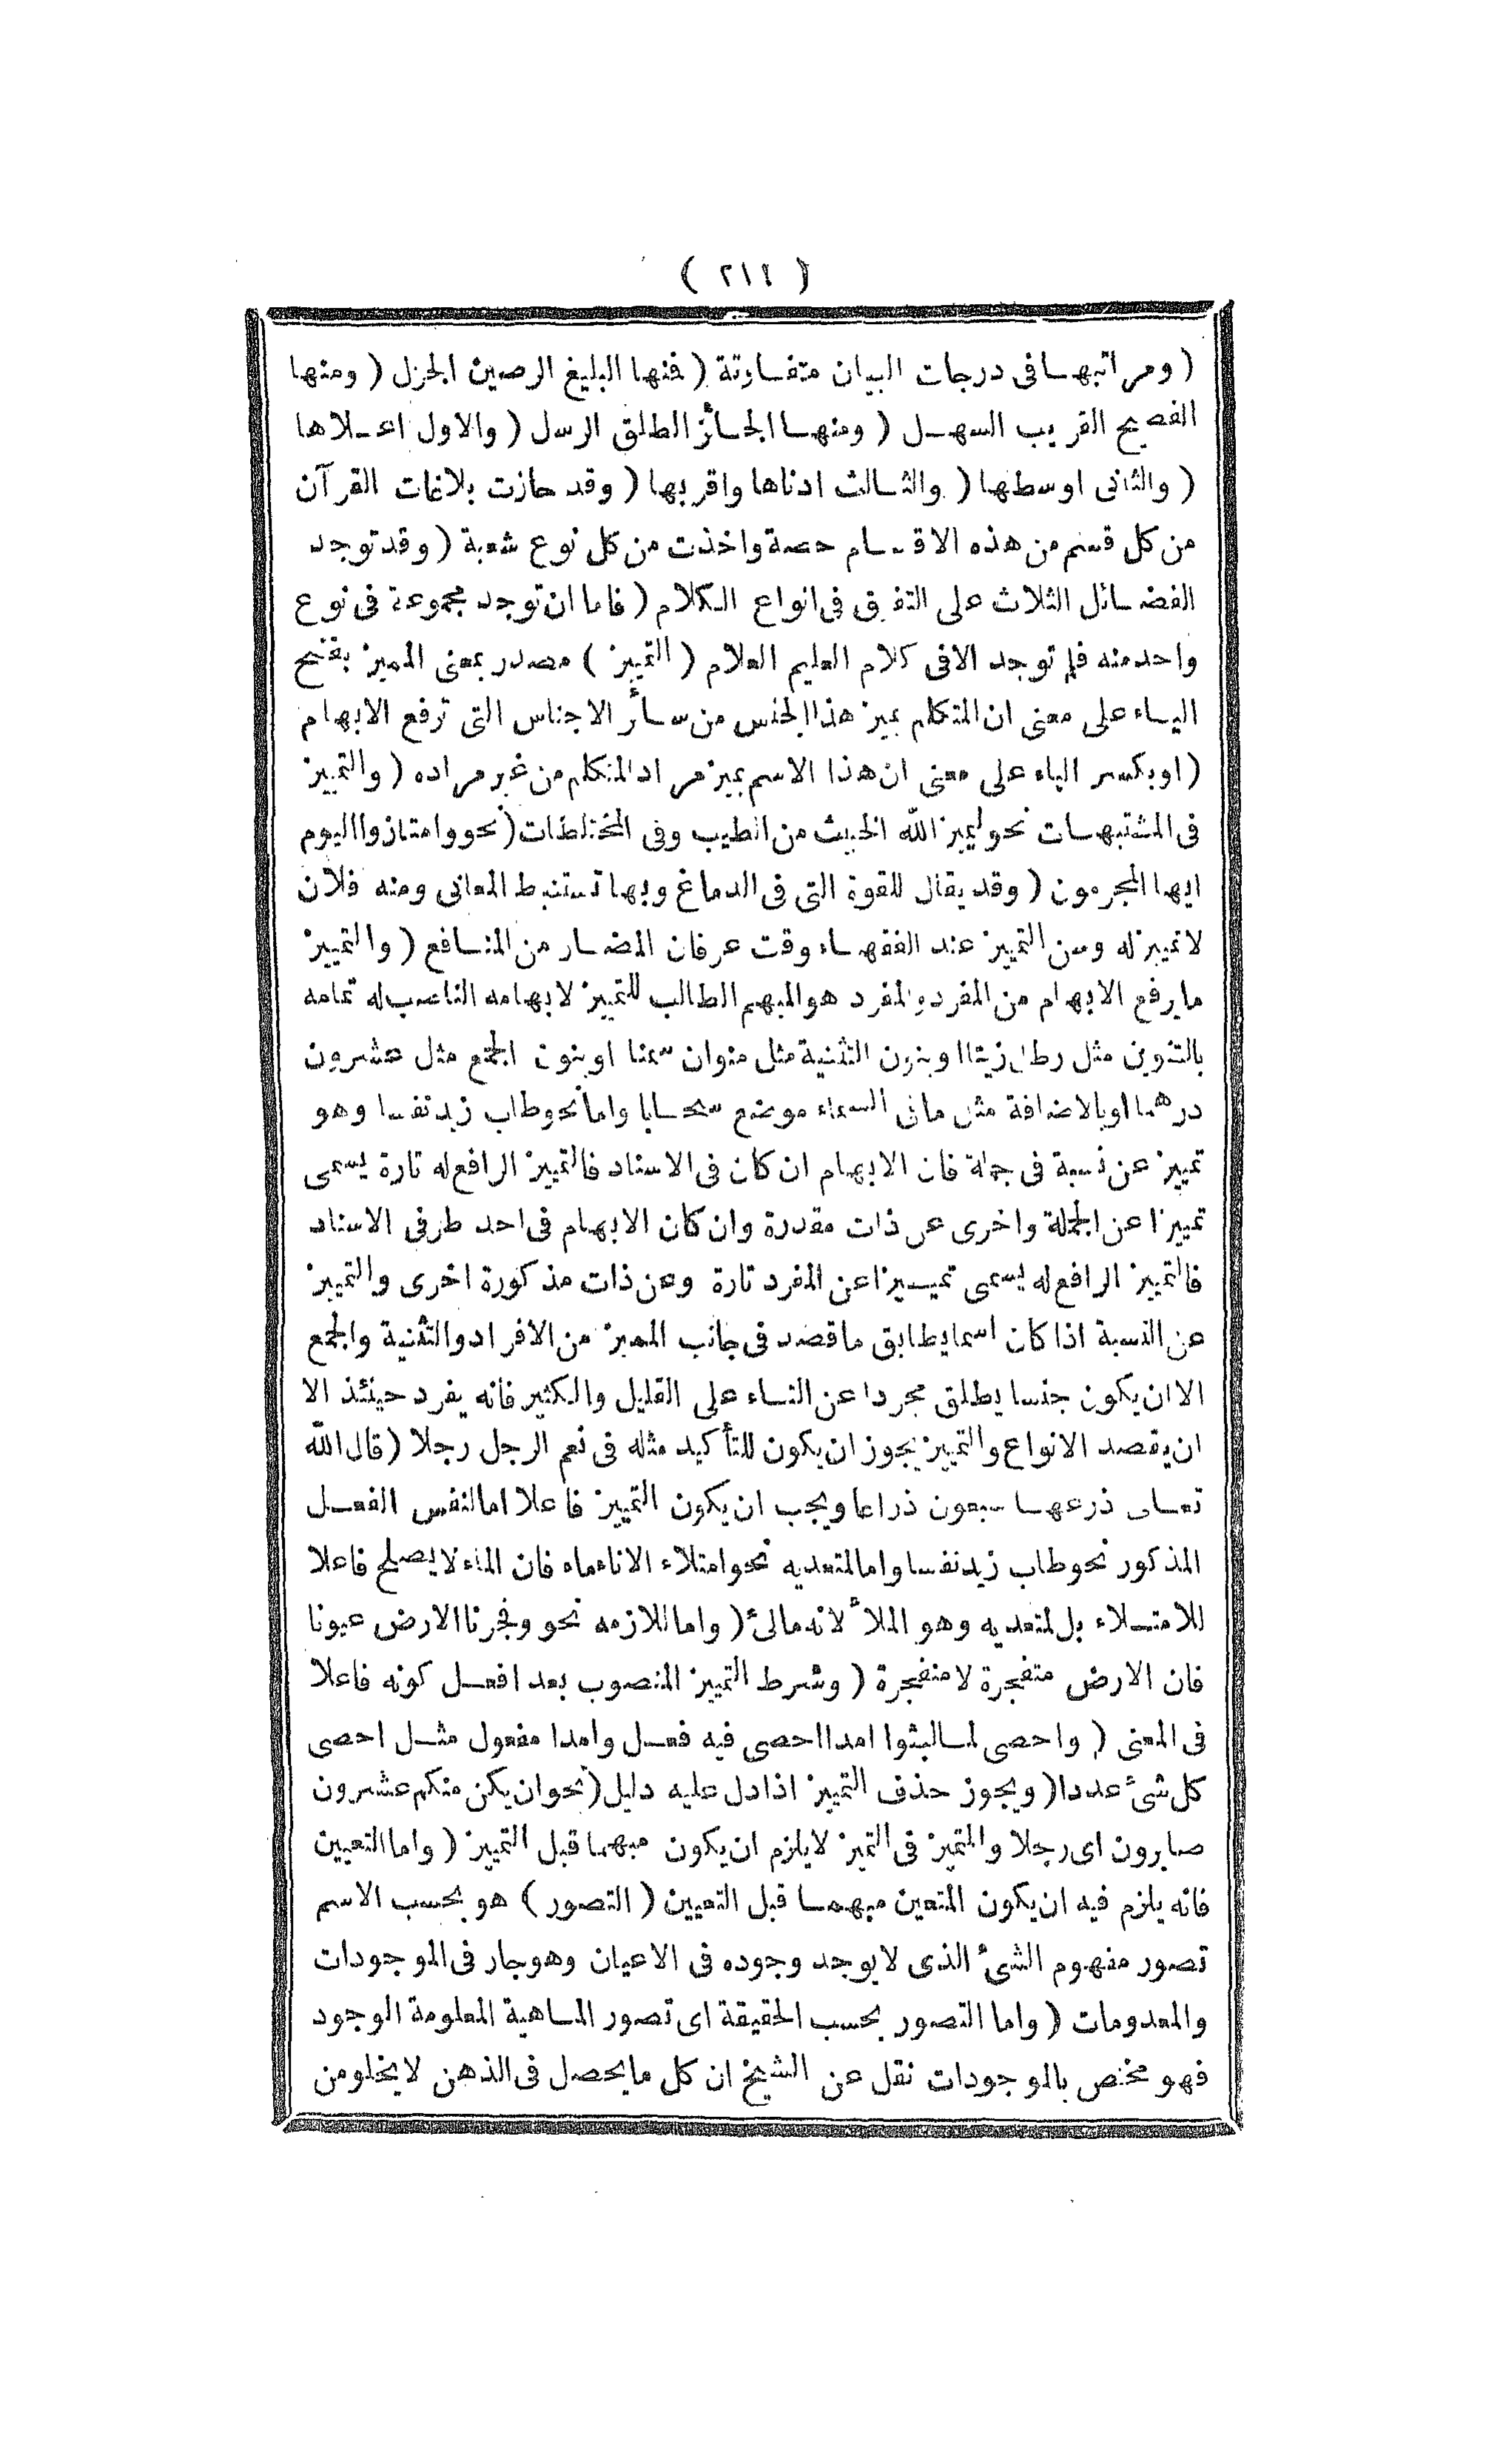 ( ٢١٤ )
( ومراتبها فى درجات البيان متفاوتة ( فنها البليغ الرصين الجزل ( ومنها
الفصيح القريب السهل ( ومنها الجائز الطلق الرسل ( والاول اعلاها
( والثانى اوسطها ( والثالث ادناها واقربها ( وقد حازت بلاغات القرآن
من كل قسم من هذه الاقسام حصة واخذت من كل نوع شعبة ( وقد توجد
الفضائل الثلاث على التفرق فى انواع الكلام ( فاما ان توجد مجموعة فى نوع
واحد منه فلم توجد الا فى كلام العليم العلام ( التمييز ) مصدر بمعنى المميز بفتح
الياء على معنى ان المتكلم يميز هذا الجنس من سائر الاجناس التى ترفع الابهام
( او بكسر الياء على معنى ان هذا الاسم يميز مراد المتكلم من غير مراده ( والتمييز
فى المشتبهات نحو ليميز الله الخبيث من الطيب وفى المختلطات ( نحو وامتازوا اليوم
ايها المجرمون ( وقد يقال للقوة التى فى الدماغ وبها تستنبط المعانى ومنه فلان
لا تمييز له وسن التمييز عند الفقهاء وقت عرفان المضار من المنافع ( والتمييز
ما يرفع الابهام من المفرد والمفرد هو المبهم الطالب للتمييز لابهامه الناصب له تمامه
بالتنوين مثل رطل زيتا او بنون التثنية مثل منوان سمنا او بنون الجمع مثل عشرون
درهما او بالاضافة مثل ما فى السماء موضع سحابا واما نحو طاب زيد نفسا وهو
تمييز عن نسبة فى جملة فان الابهام ان كان فى الاسناد فالتمييز الرافع له تارة يسمى
تمييزا عن الجملة واخرى عن ذات مقدرة وان كان الابهام فى احد طرفى الاسناد
فالتمييز الرافع له يسمى تمييزا عن المفرد تارة وعن ذات مذكورة اخرى والتمييز
عن النسبة اذا كان اسما يطابق ما قصد فى جانب المميز من الافراد والتثنية والجمع
الا ان يكون جنسا يطلق مجردا عن التاء على القليل والكثير فانه يفرد حينئذ الا
ان يقصد الانواع والتمييز يجوز ان يكون للتأكيد مثله فى نعم الرجل رجلا ( قال الله
تعالى ذرعها سبعون ذراعا ويجب ان يكون التمييز فاعلا اما لنفس الفعل
المذكور نحو طاب زيد نفسا واما لمتعديه نحو امتلاء الاناء ماء فان الماء لا يصلح فاعلا
للامتلاء بل لمتعديه وهو الملأ لانه مالئ ( واما للازمه نحو وفجرنا الارض عيونا
فان الارض متفجرة لا منفجرة ( وشرط التمييز المنصوب بعد افعل كونه فاعلا
فى المعنى ( واحصى لما لبثوا امدا احصى فيه فعل وامدا مفعول مثل احصى
كل شئ عددا ( ويجوز حذف التمييز اذا دل عليه دليل ( نحو ان يكن منكم عشرون
صابرون اى رجلا والمتميز فى التميز لا يلزم ان يكون مبهما قبل التمييز ( واما التعيين
فانه يلزم فيه ان يكون المتعين مبهما قبل التعيين ( التصور ) هو بحسب الاسم
تصور مفهوم الشئ الذى لا يوجد وجوده فى الاعيان وهو جار فى الموجودات
والمعدومات ( واما التصور بحسب الحقيقة اى تصور الماهية المعلومة الوجود
فهو مختص بالموجودات نقل عن الشيخ ان كل ما يحصل فى الذهن لا يخلو من